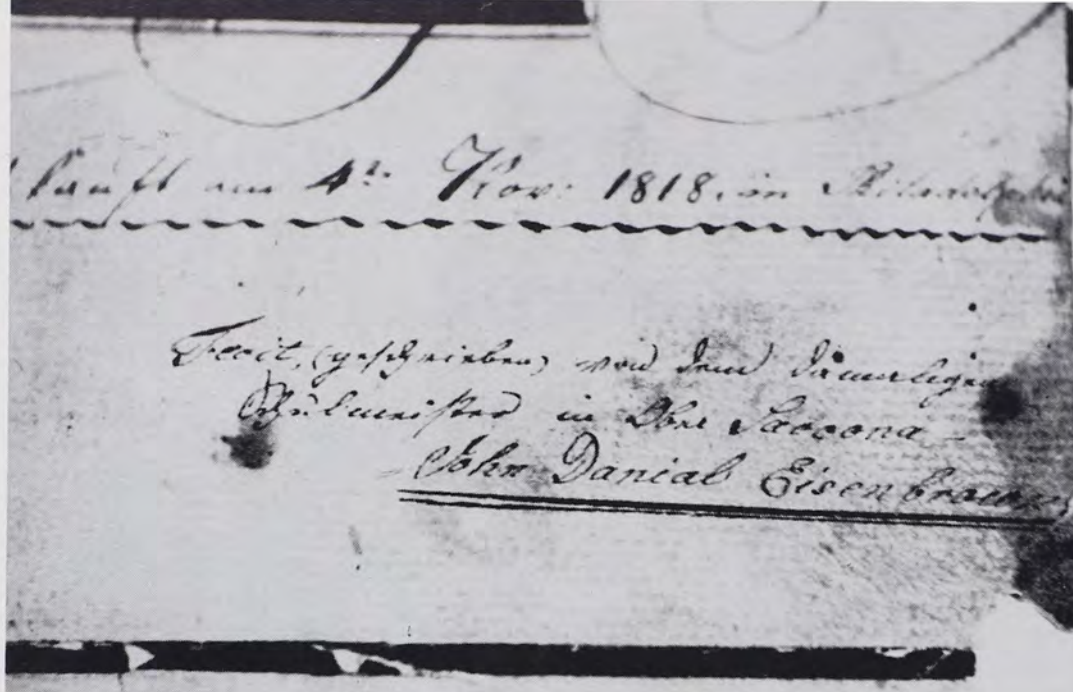 kauft am 4t. Nov: 1818. in Philadelphi
Fecit, (geschrieben) von dem damaligen
Schulmeister in Ober Saccona
John Danial Eisenbrown